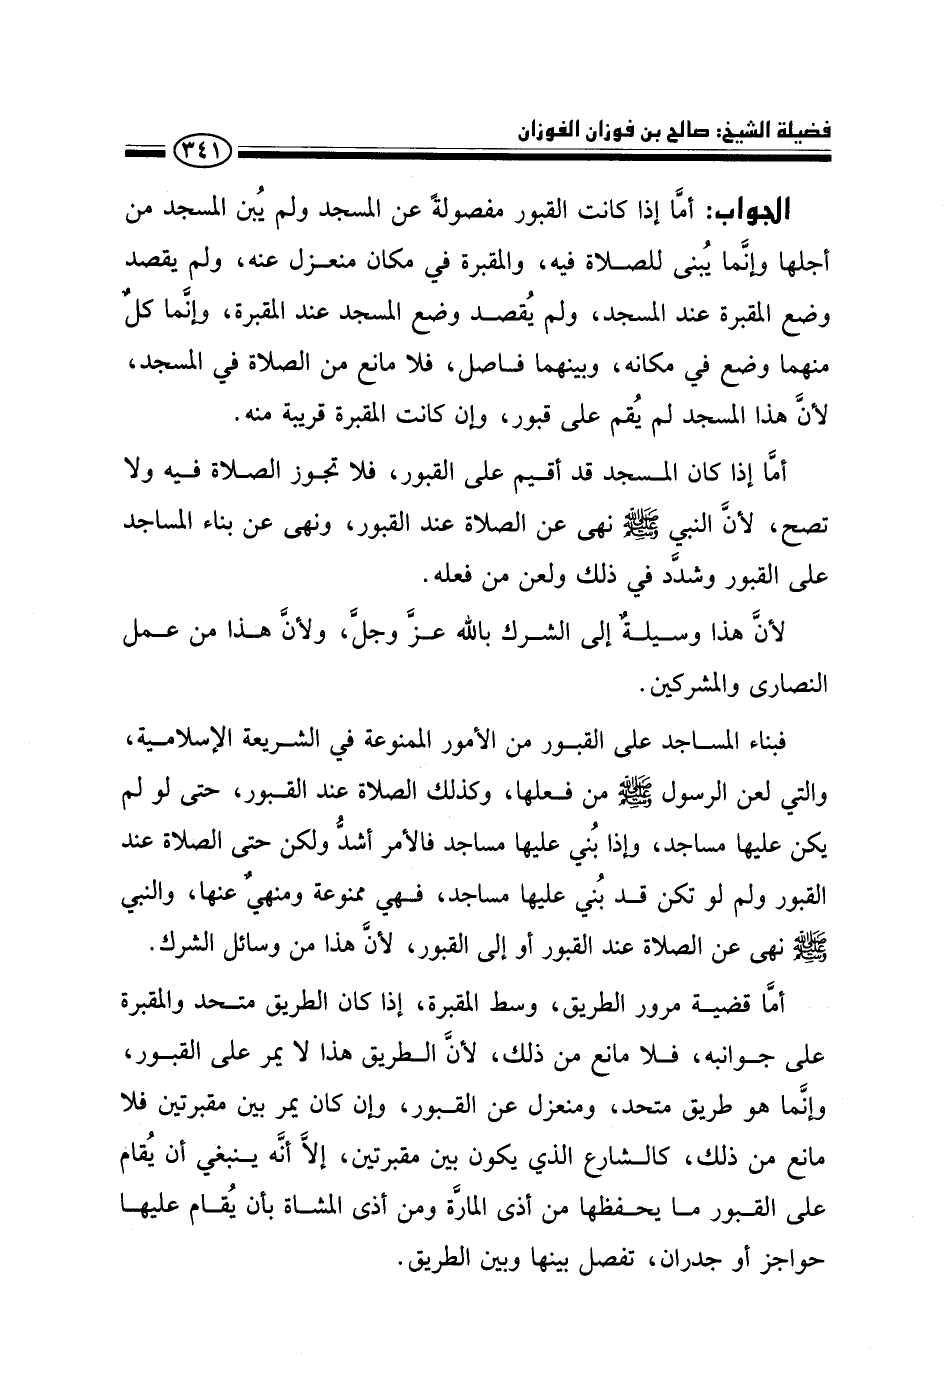 فضيلة الشيخ: صالح بن فوزان الفوزان
٣٤١
الجواب: أمَّا إذا كانت القبور مفصولةً عن المسجد ولم يُبن المسجد من
أجلها وإنَّما يُبنى للصلاة فيه، والمقبرة في مكان منعزل عنه، ولم يقصد
وضع المقبرة عند المسجد، ولم يُقصد وضع المسجد عند المقبرة، وإنَّما كلٌ
منهما وضع في مكانه، وبينهما فاصل، فلا مانع من الصلاة في المسجد،
لأنَّ هذا المسجد لم يُقم على قبور، وإن كانت المقبرة قريبة منه.
أمَّا إذا كان المسجد قد أقيم على القبور، فلا تجوز الصلاة فيه ولا
تصح، لأنَّ النبي ﷺ نهى عن الصلاة عند القبور، ونهى عن بناء المساجد
على القبور وشدَّد في ذلك ولعن من فعله.
لأنَّ هذا وسيلةٌ إلى الشرك بالله عزَّ وجلَّ، ولأنَّ هذا من عمل
النصارى والمشركين.
فبناء المساجد على القبور من الأمور الممنوعة في الشريعة الإسلامية،
والتي لعن الرسول ﷺ من فعلها، وكذلك الصلاة عند القبور، حتى لو لم
يكن عليها مساجد، وإذا بُني عليها مساجد فالأمر أشدُّ ولكن حتى الصلاة عند
القبور ولم لو تكن قد بُني عليها مساجد، فهي ممنوعة ومنهيٌ عنها، والنبي
ﷺ نهى عن الصلاة عند القبور أو إلى القبور، لأنَّ هذا من وسائل الشرك.
أمَّا قضية مرور الطريق، وسط المقبرة، إذا كان الطريق متحد والمقبرة
على جوانبه، فلا مانع من ذلك، لأنَّ الطريق هذا لا يمر على القبور،
وإنَّما هو طريق متحد، ومنعزل عن القبور، وإن كان يمر بين مقبرتين فلا
مانع من ذلك، كالشارع الذي يكون بين مقبرتين، إلاَّ أنَّه ينبغي أن يُقام
على القبور ما يحفظها من أذى المارَّة ومن أذى المشاة بأن يُقام عليها
حواجز أو جدران، تفصل بينها وبين الطريق.